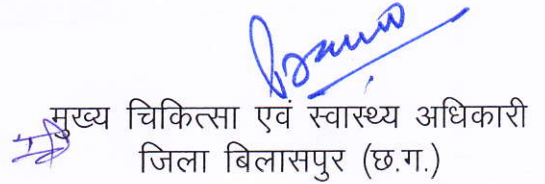 मुख्य चिकित्सा एवं स्वास्थ्य अधिकारी
जिला बिलासपुर (छ.ग.)